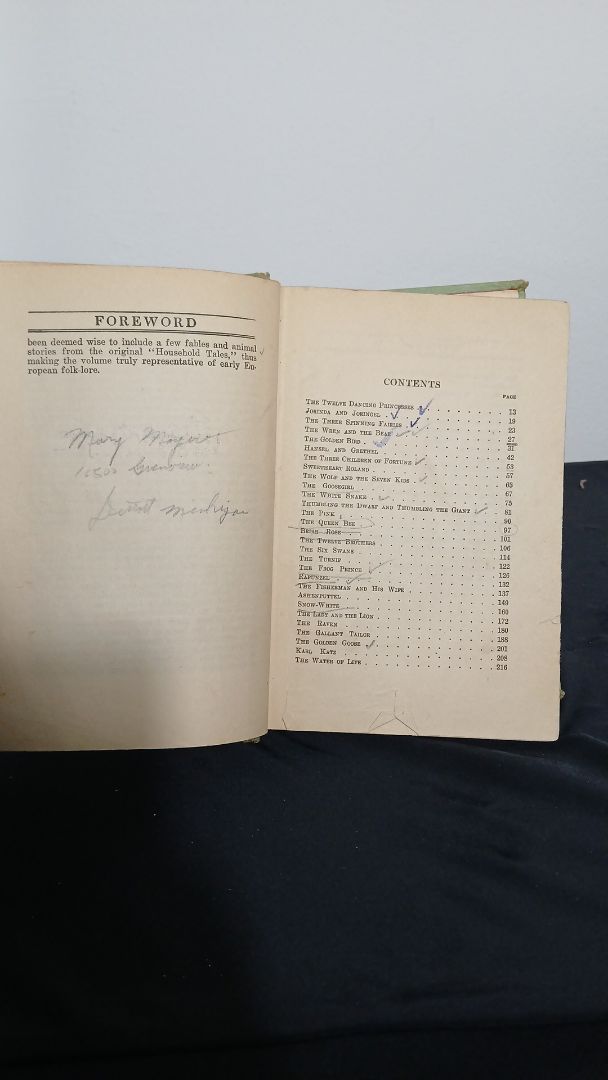 FOREWORD
been deemed wise to include a few fables and animal
stories from the original "Household Tales," thus
making the volume truly representative of early Eu-
ropean folk-lore.
Mary
Detroit Michigan
CONTENTS
PAGE
The Twelve Dancing Princesses 13
Jorinda and Joringel 19
The Three Spinning Fairies 23
The Wren and the Bear 27
The Golden Bird 31
Hansel and Grethel 42
The Three Children of Fortune 53
Sweetheart Roland 57
The Wolf and the Seven Kids 63
The Goosegirl 67
The White Snake 75
Thumbling the Dwarf and Thumbling the Giant 81
The Pink 90
The Queen Bee 97
Briar Rose 101
The Twelve Brothers 106
The Six Swans 114
The Turnip 122
The Frog Prince 126
Rapunzel 132
The Fisherman and His Wife 137
Ashenputtel 149
Snow-White 160
The Lady and the Lion 172
The Raven 180
The Gallant Tailor 188
The Golden Goose 201
Karl Katz 208
The Water of Life 216